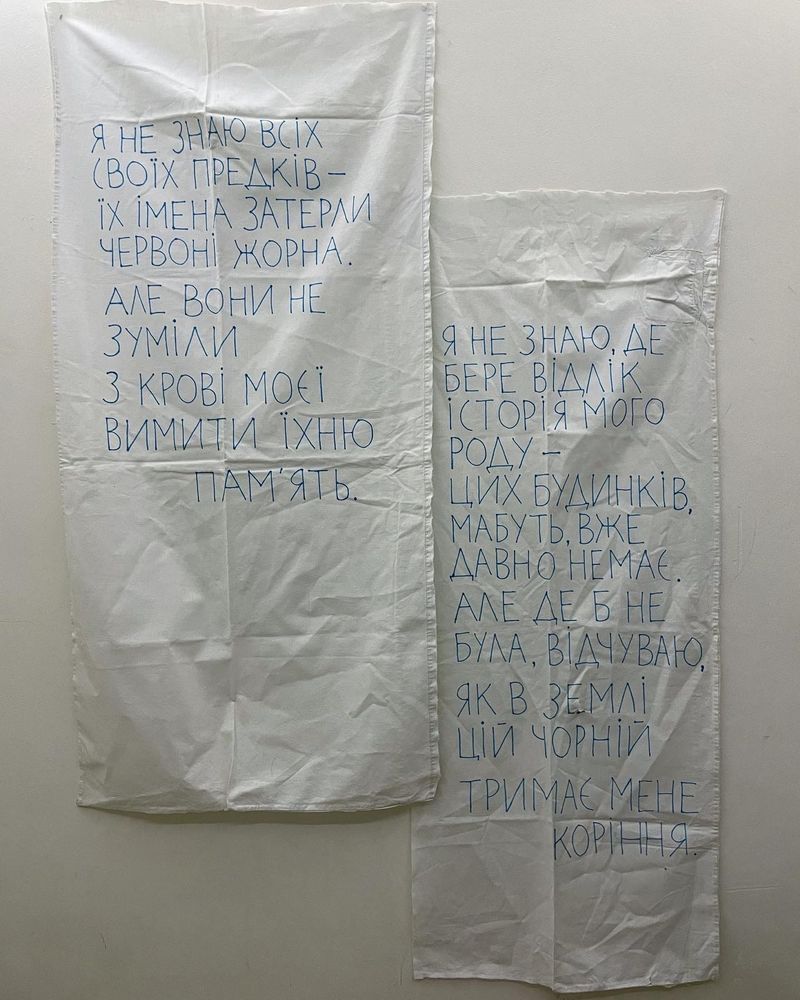 Я НЕ ЗНАЮ ВСІХ
СВОЇХ ПРЕДКІВ –
ЇХ ІМЕНА ЗАТЕРЛИ
ЧЕРВОНІ ЖОРНА.
АЛЕ ВОНИ НЕ
ЗУМІЛИ
З КРОВІ МОЄЇ
ВИМИТИ ЇХНЮ
ПАМ'ЯТЬ.
Я НЕ ЗНАЮ, ДЕ
БЕРЕ ВІДЛІК
ІСТОРІЯ МОГО
РОДУ –
ЦИХ БУДИНКІВ,
МАБУТЬ, ВЖЕ
ДАВНО НЕМАЄ.
АЛЕ ДЕ Б НЕ
БУЛА, ВІДЧУВАЮ,
ЯК В ЗЕМЛІ
ЦІЙ ЧОРНІЙ
ТРИМАЄ МЕНЕ
КОРІННЯ.